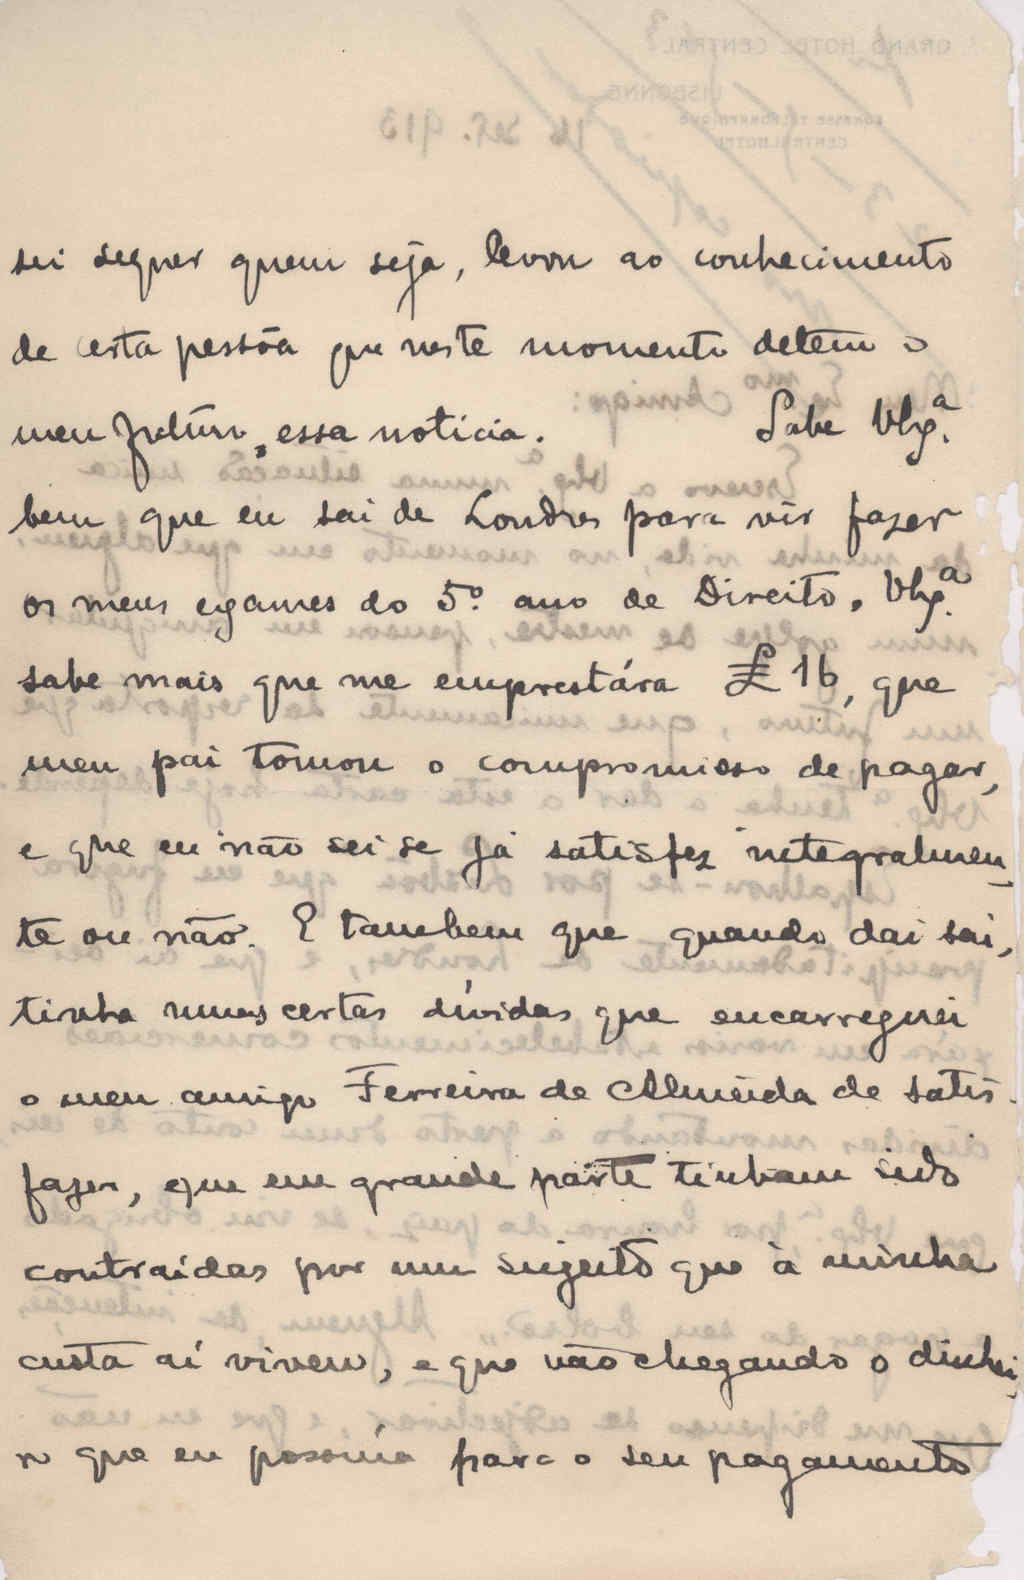 sei sequer quem seja, levou ao conhecimento
de certa pessôa que neste momento detem o
meu futuro, essa noticia. Sabe Vhx.ª
bem que eu sai de Londres para vir fazer
os meus exames do 5.º ano de Direito. Vhx.ª
sabe mais que me emprestára £ 16, que
meu pai tomou o compromisso de pagar,
e que eu não sei se já satisfez integralmen-
te ou não. E tambem que quando dai sai,
tinha umas certas dívidas que encarreguei
o meu amigo Ferreira de Almeida de satis-
fazer, que em grande parte tinham sido
contraídas por um sujeito que à minha
custa aí viveu, e que não chegando o dinhei-
ro que eu possuía para o seu pagamento